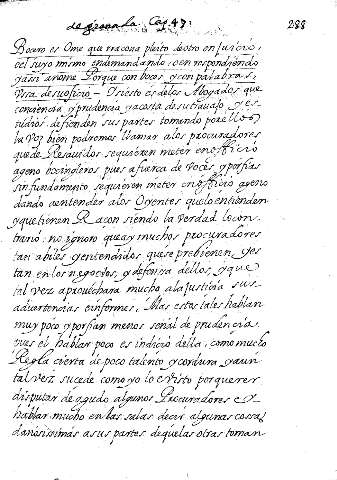 de granada. Cap. 47. 288
Bocero es Ome que razona pleito de otro en Juicio,
o el suyo mismo en demandando, o en respondiendo
y assi a nome Porque con boces y con palabras,
ussa de su oficio = Si esto es de los Abogados que
con ciencia y prudencia y a costa de su trauajo, y es-
tudios defienden sus partes tomando por ellos,
la voz bien podremos llamar a los procuradores
que de Resauidos se quieren meter en officio
ageno bozingleros pues a fuerca de voces y porfias
sin fundamento se quieren meter en officio ageno
dando a entender a los Oyentes que lo entienden
y que tienen Racon siendo la verdad lo con-
trario; no ignoro que ay muchos procuradores
tan abiles y entendidos, que se prebienen, y es
tan en los negocios, y defensa dellos, y que
tal vez aprouechara mucho a la Justicia sus
aduertencias e informes, Mas estos tales hablan
muy poco y porfian menos señal de prudencia,
pues el hablar poco es indicio della, como mucho
Regla cierta de poco talento y cordura, y aun
tal vez sucede como yo lo e visto por querer
disputar de agudo algunos Procuradores e y
hablar mucho en las salas decir algunas cossas
danosissimas a sus partes de que las otras toman